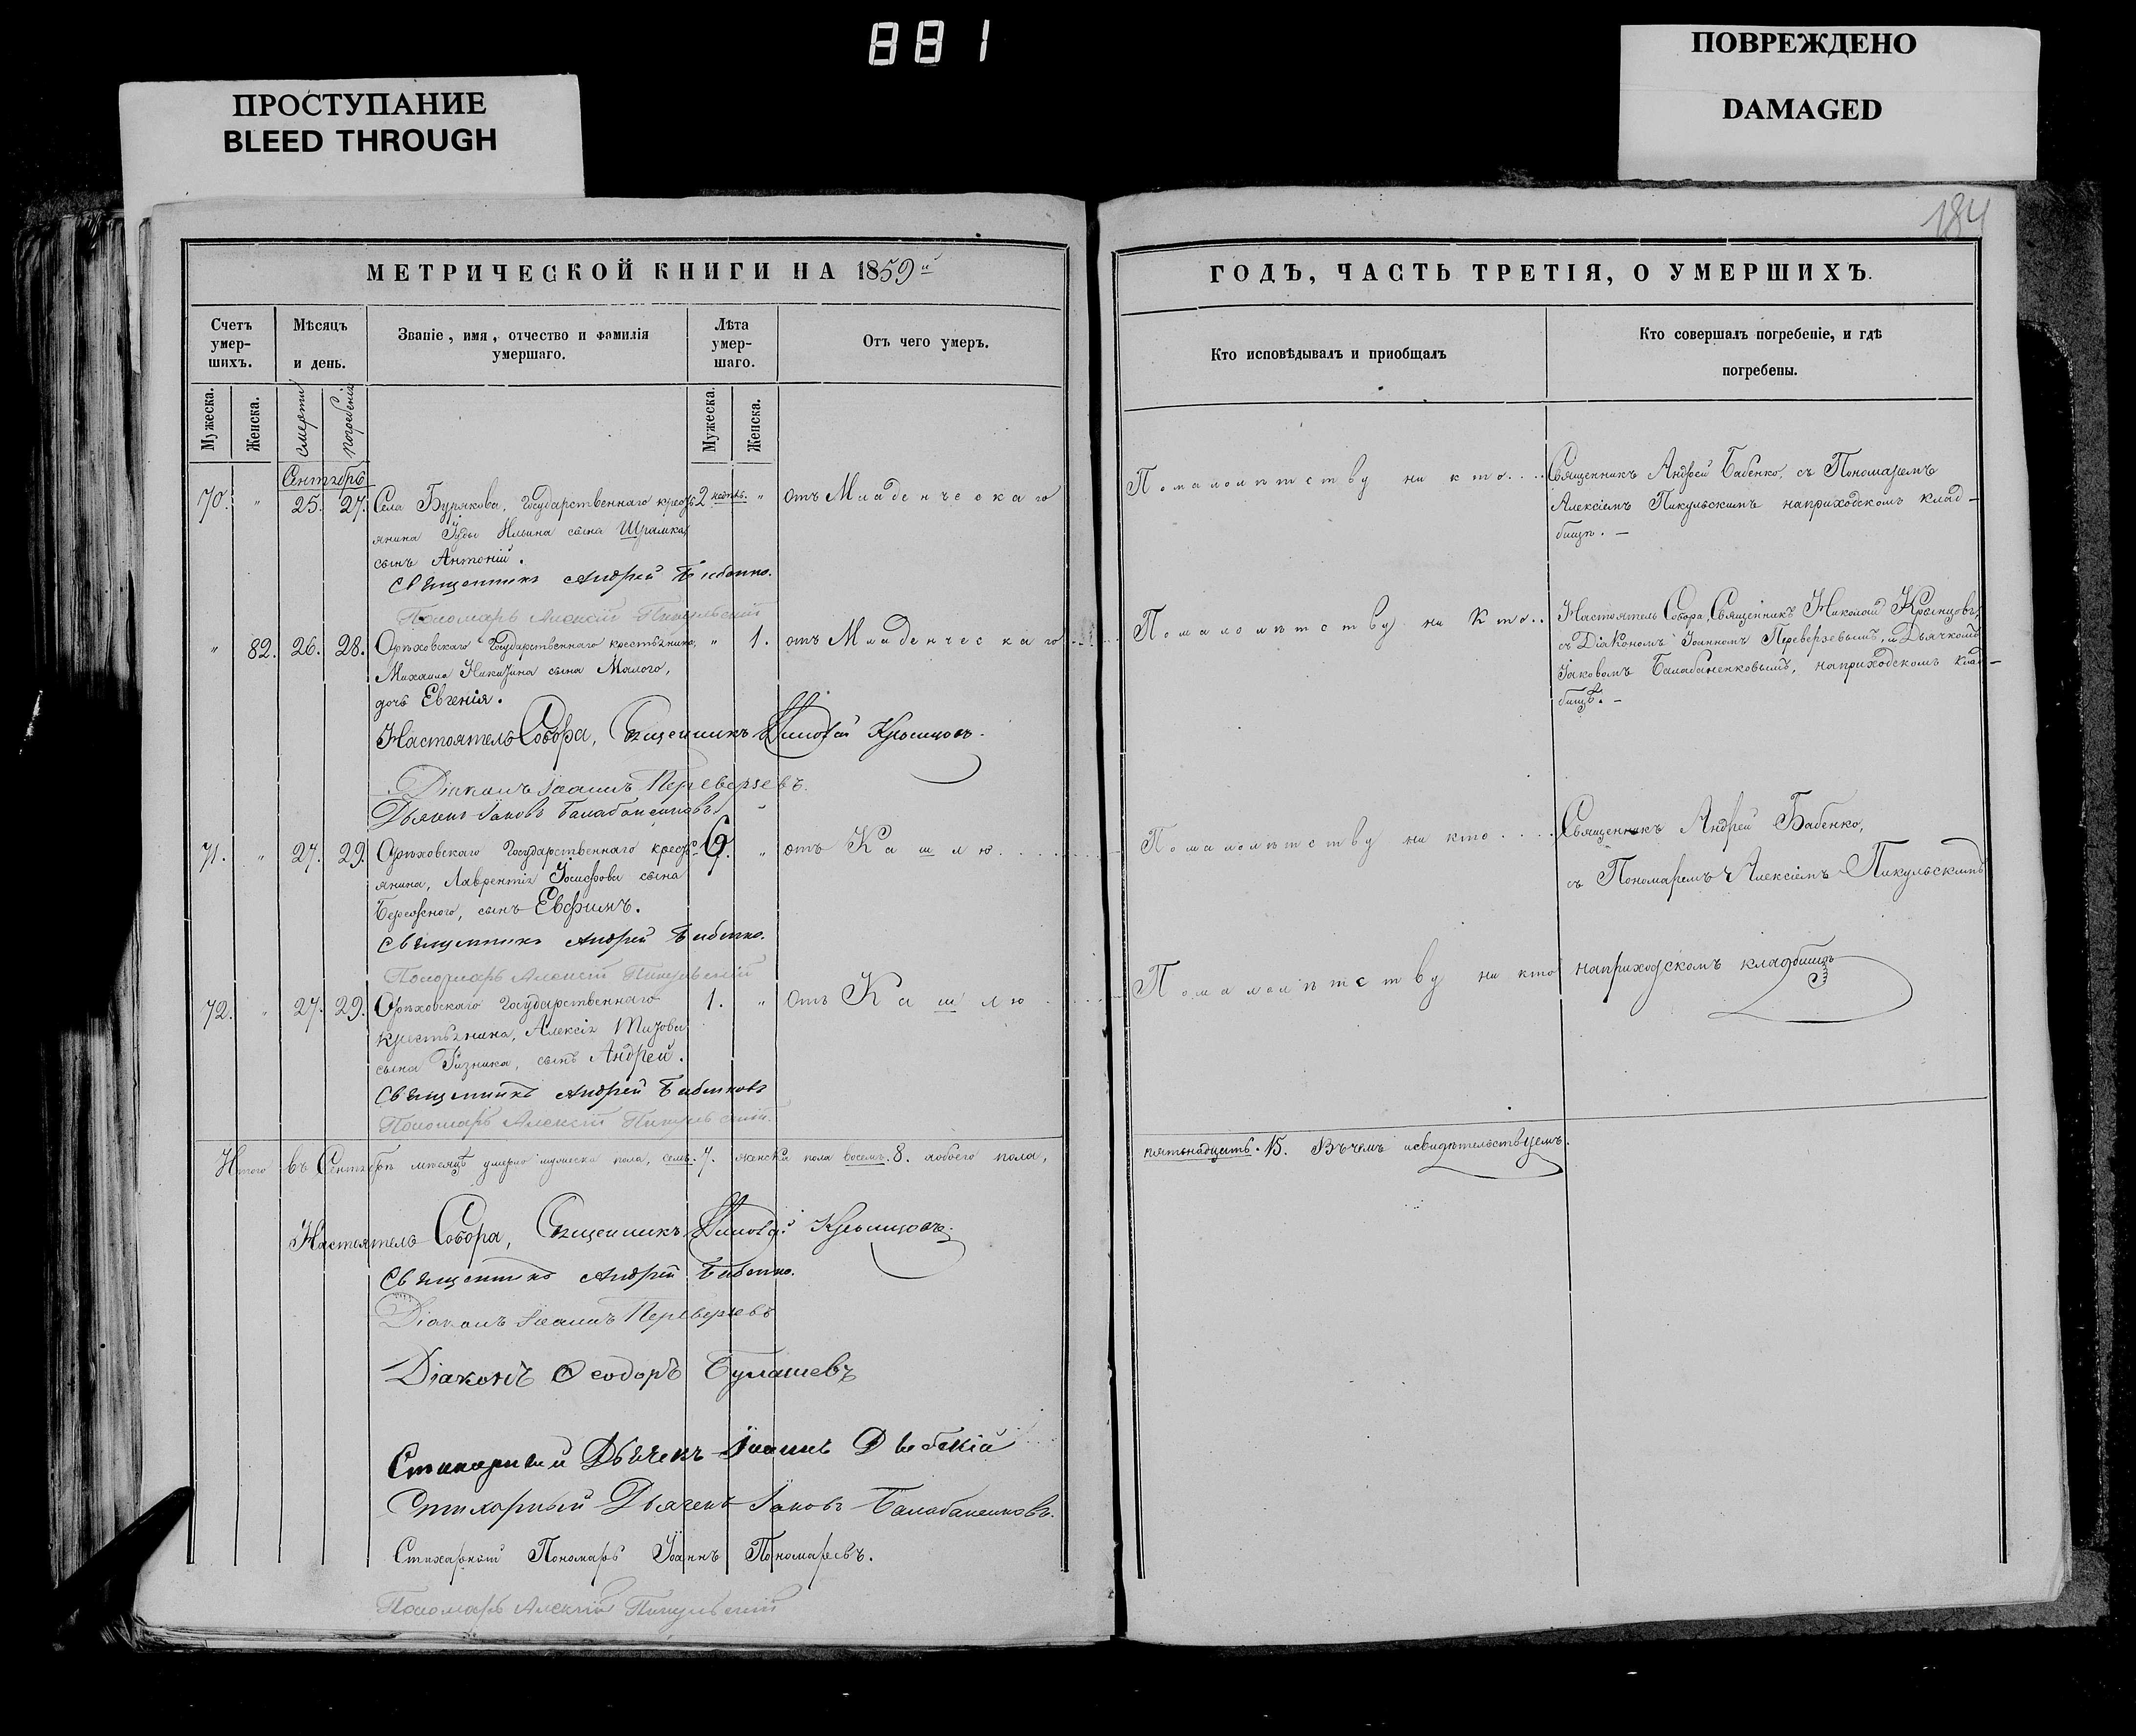 881
ПРОСТУПАНИЕ
BLEED THROUGH
ПОВРЕЖДЕНО
DAMAGED
184
МЕТРИЧЕСКОЙ КНИГИ НА 1859й
Счетъ умер-шихъ.
Мѣсяцъ и день.
Званіе, имя, отчество и фамилія умершаго.
Лѣта умер-шаго.
Отъ чего умеръ.
Мужеска.
Женска.
Смерти
Погребенія
Мужеска.
Женска.
Сентябрь
70. „ 25. 27. Села Бурякова, Государственнаго крестъ- 2 недѣль. „ отъ Младенческаго
янина Іуды Ильина сына Шрамка,
сынъ Антоній.
Священникъ Андрей Бабенко.
Пономарь Алексій Пикульскій
„ 82. 26. 28. Орѣховскаго Государственнаго крестьянина, „ 1. отъ Младенческаго
Михаила Никитина сына Малого,
дочь Евгенія.
Настоятель Собора, Священникъ Николай Крынцовъ.
Діаконъ Іоаннъ Переверзевъ.
Дьячекъ Іаковъ Балабаненковъ
71. „ 27. 29. Орѣховскаго Государственнаго крестъ- 6. „ отъ Кашлю
янина, Лаврентія Іосифова сына
сынъ Евфимъ.
Священникъ Андрей Бабенко.
Пономарь Алексій Пикульскій
72. „ 27. 29. Орѣховскаго Государственнаго 1. „ отъ Кашлю
крестьянина, Алексія Титова
сына сынъ Андрей.
Священникъ Андрей Бабенковъ
Пономарь Алексій Пикульскій.
Итого въ Сентябрѣ мѣсяцѣ умерло мужеска пола, семь. 7. женска пола восемь. 8. а обоего пола,
Настоятель Собора, Священникъ Николай Крынцовъ.
Священникъ Андрей Бабенко.
Діаконъ Іоаннъ Переверзевъ
Діаконъ Ѳеодоръ Булашевъ
Стихарный Дьячекъ Іоаннъ
Стихарный Дьячекъ Іаковъ Балабаненковъ.
Стихарный Пономарь Іоаннъ Пономаревъ.
Пономарь Алексій Пикульскій
ГОДЪ, ЧАСТЬ ТРЕТІЯ, О УМЕРШИХЪ.
Кто исповѣдывалъ и пріобщалъ
Кто совершалъ погребеніе, и гдѣ погребены.
По малолѣтству ни кто....
Священникъ Андрей Бабенко, съ Пономаремъ
Алексіемъ Пикульскимъ на приходскомъ клад-
бищѣ. —
По малолѣтству ни кто..
Настоятель Собора, Священникъ Николай Крынцовъ,
съ Діакономъ Іоанномъ Переверзевымъ, и Дьячкомъ
Іаковомъ Балабаненковымъ, на приходскомъ клад-
бищѣ. —
По малолѣтству ни кто....
Священникъ Андрей Бабенко,
съ Пономаремъ Алексіемъ Пикульскимъ
По малолѣтству ни кто
на приходскомъ кладбищѣ
пятьнадцать. 15. Въ чемъ и свидѣтельствуемъ.